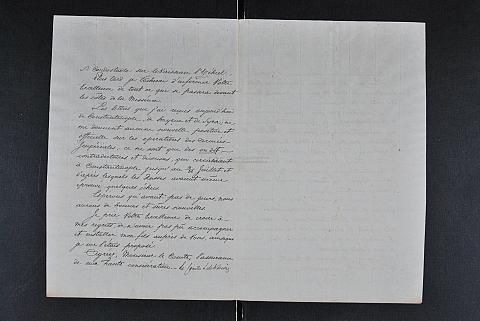 d'embarcations sur le vaisseau l'
Plus tard je tâcherai d'informer Votre
Excellence de tout ce qui se passera devant
les côtes de la Messénie.
Les lettres que j'ai reçues aujourd'hui
de Constantinople, de Smyrne et de Syra, ne
me donnent aucune nouvelle positive et
officielle sur les opérations des Armées
Impériales, ce ne sont que des on dit
contradictoires et diverses, qui circulaient
à Constantinople jusqu'au Juillet et
d'après lesquels les Russes avaient même
éprouvé quelques échecs.
Espérons qu'avant peu de jours nous
aurons de bonnes et sûres nouvelles.
Je prie Votre Excellence de croire à
mes regrets, de n'avoir pas pu accompagner
et installer mon fils auprès de Vous, ainsi que
je me l'étais proposé.
Agréez, Monsieur le Comte, l'assurance
de ma haute considération.